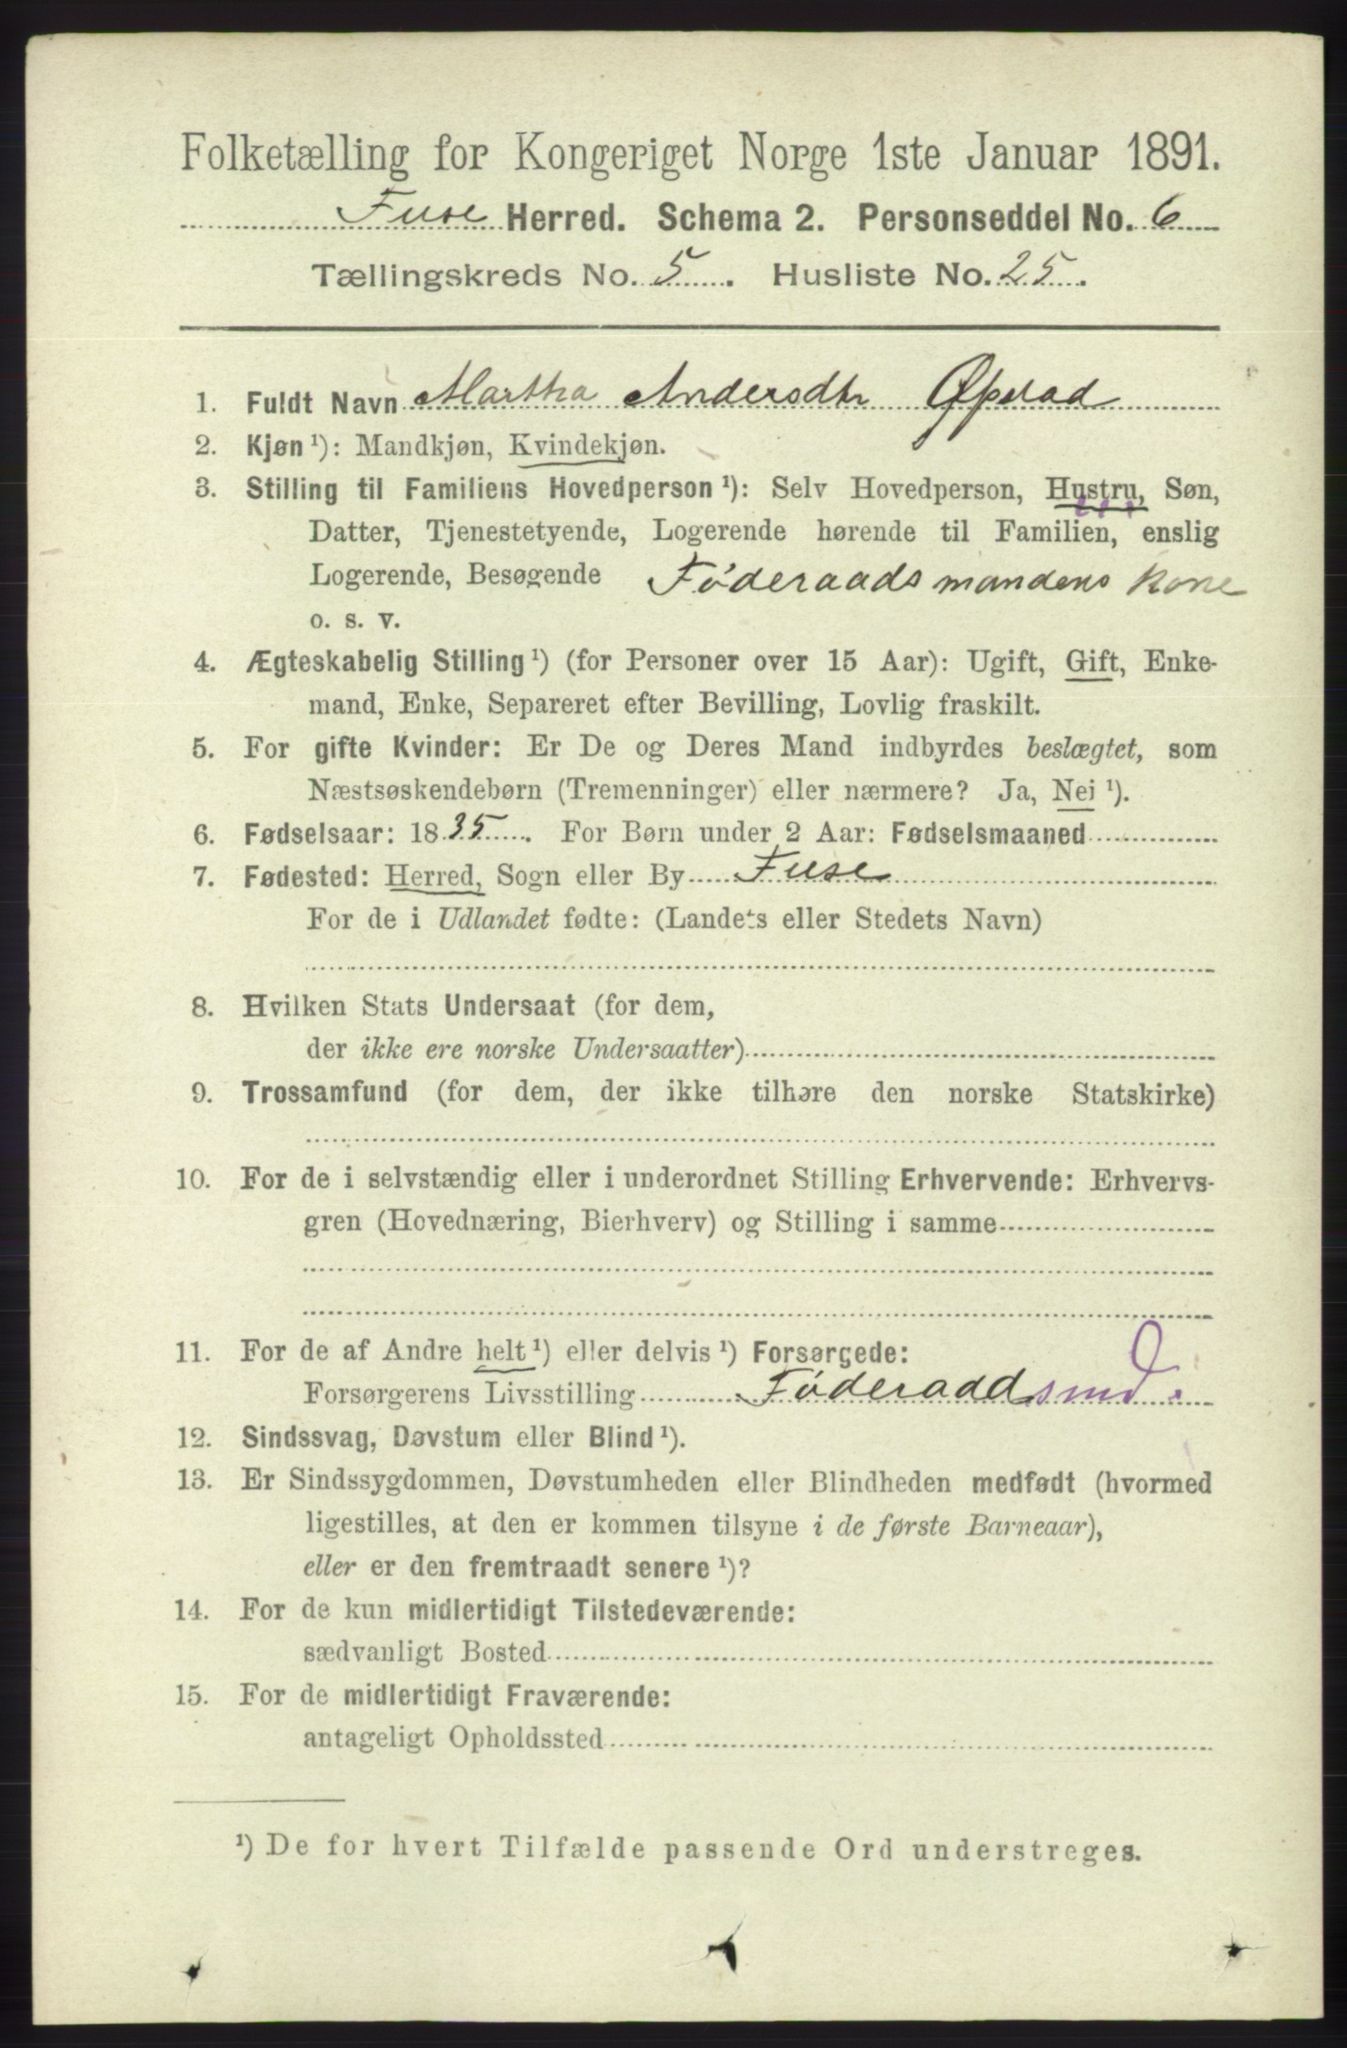 Folketælling for Kongeriget Norge 1ste Januar 1891.
Fuse Herred. Schema 2. Personseddel No. 6
Tællingskreds No. 5. Husliste No. 25.
1. Fuldt Navn Martha Andersdtr Øpstad
2. Kjøn ¹): Mandkjøn, Kvindekjøn.
3. Stilling til Familiens Hovedperson ¹): Selv Hovedperson, Hustru, Søn,
Datter, Tjenestetyende, Logerende hørende til Familien, enslig
Logerende, Besøgende Føderaadsmandens kone
o. s. v.
4. Ægteskabelig Stilling ¹) (for Personer over 15 Aar): Ugift, Gift, Enke-
mand, Enke, Separeret efter Bevilling, Lovlig fraskilt.
5. For gifte Kvinder: Er De og Deres Mand indbyrdes beslægtet, som
Næstsøskendebørn (Tremenninger) eller nærmere? Ja, Nei ¹).
6. Fødselsaar: 1835. For Børn under 2 Aar: Fødselsmaaned
7. Fødested: Herred, Sogn eller By Fuse
For de i Udlandet fødte: (Landets eller Stedets Navn)
8. Hvilken Stats Undersaat (for dem,
der ikke ere norske Undersaatter)
9. Trossamfund (for dem, der ikke tilhøre den norske Statskirke)
10. For de i selvstændig eller i underordnet Stilling Erhvervende: Erhvervs-
gren (Hovednæring, Bierhverv) og Stilling i samme
11. For de af Andre helt ¹) eller delvis ¹) Forsørgede:
Forsørgerens Livsstilling Føderaadsmd.
12. Sindssvag, Døvstum eller Blind ¹).
13. Er Sindssygdommen, Døvstumheden eller Blindheden medfødt (hvormed
ligestilles, at den er kommen tilsyne i de første Barneaar),
eller er den fremtraadt senere ¹)?
14. For de kun midlertidigt Tilstedeværende:
sædvanligt Bosted
15. For de midlertidigt Fraværende:
antageligt Opholdssted
¹) De for hvert Tilfælde passende Ord understreges.